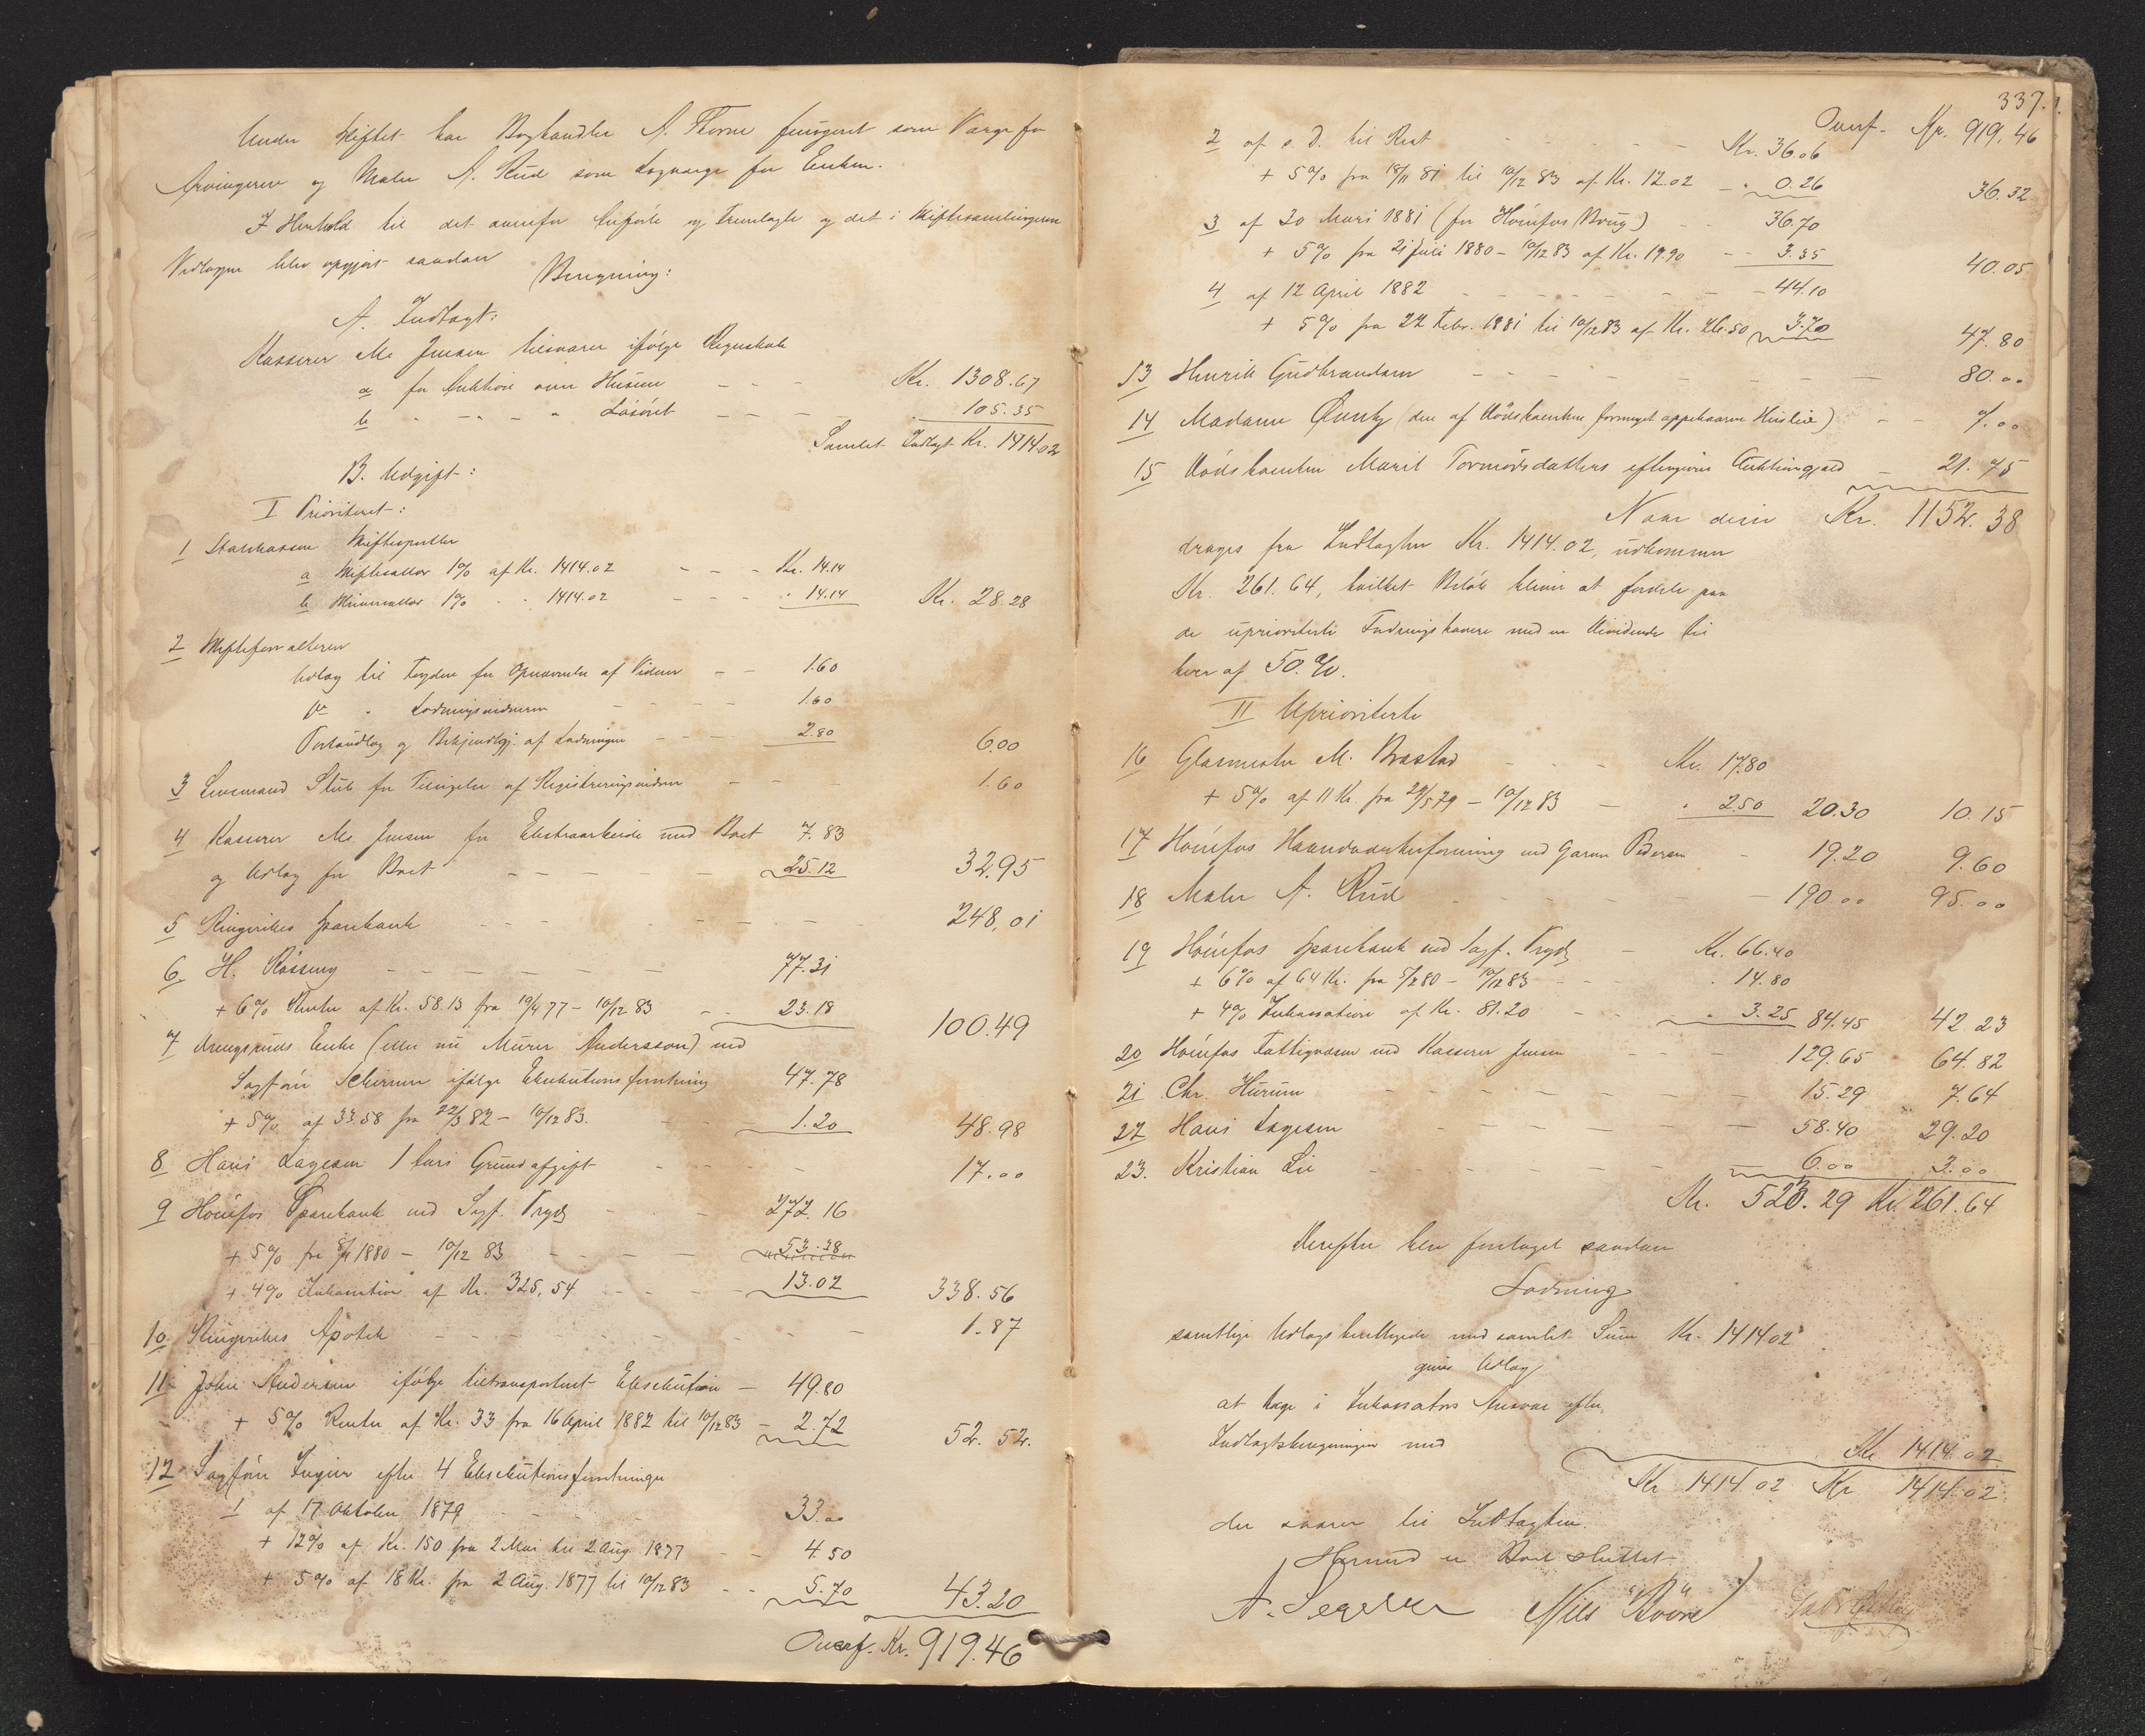 Under Skiftet har Boghandler A. Thorne fungeret som Værge for
Arvingerne og Maler A. Rud som Lagværge for Enken.
I Henhold til det ovenfor Anførte og Fremlagte og det i Skiftesamlingerne
Vedtagne blev opgjort saadan
Beregning:
A. Indtægt:
Kasserer Me Jensen tilsvarer ifølge Regnskab
a for Auktion over Husene - - - Kr. 1308.67
b - - - " Løsøret - - - 105.35
Samlet Indtægt Kr. 1414.02
B. Udgift:
I Prioriteret:
1 Statskassen Skiftesportler
a Skifteskat 1% af Kr. 1414.02 - - - Kr. 14.14
b 1% - - 1414.02 - - - " 14.14 Kr. 28.28
2 Skifteforvalteren
Udlæg til Fogden for Opnævnelse af Vidner - - 1.60
for " Lodningsvidnerne - - - 1.60
Portoudlæg og Bekjendtgj. af Lodningen - - - 2.80 6.00
3 Lensmand Stub for Tilsigelse af Registreringsvidner - - 1.60
4 Kasserer Me Jensen for Ekstraarbeide med Boet 7.83
og Udlæg for Boet - - - 25.12 32.95
5 Ringerikes Sparebank - - - 248,01
6 H. Rössing - - - 77.31
+ 6% Renter af Kr. 58.13 fra 19/4 77 - 10/12 83 - - 23.18 100.49
7 Enke (eller nu Murer Andersson) ved
Sagfører Schirmer ifølge Eksekutionsforretning 47.78
+ 5% af 33.58 fra 22/3 82 - 10/12 83. 1.20 48.98
8 Hans Lagesen 1 Aars Grundafgift - - - 17.00
9 Hönefos Sparebank ved Sagf. Trydz - - - 272.16
+ 5% fra 8/1 1880 - 10/12 83 - - - 53.38
+ 4% Inkassation af Kr. 325,54 - - - 13.02 338.56
10 Ringerikes Apotek - - - 1.87
11 John Andersen ifølge tiltransporteret Eksekution - 49.80
+ 5% Renter af Kr. 33 fra 16 April 1882 til 10/12 83 - 2.72 52.52.
12 Sagfører efter 4 Eksekutionsforretninger
1 af 17 Oktober 1879 - - - 33.00
+ 12% af Kr. 150 fra 2 Mai til 2 Aug. 1877 - - 4.50
+ 5% af 18 Kr. fra 2 Aug. 1877 til 10/12 83 - - 5.70 43.20
Overf. Kr. 919.46
337.
Overf. Kr. 919.46
2 af s. D. til Rest - - - Kr. 36.06
+ 5% fra 18/11 81 til 10/12 83 af Kr. 12.02 - " 0.26 36.32
3 af 30 Mars 1881 (for Hönefos Brug) - - 36.70
+ 5% fra 21 Juli 1880 - 10/12 83 af Kr. 19.90 - - 3.35 40.05
4 af 12 April 1882 - - - 44.10
+ 5% fra 22 Febr. 1881 til 10/12 83 af Kr. 26.50 3.70 47.80
13 Henrik Gudbrandsen - - - 80.00
14 Madame (den af Dødsboenken formeget oppebaarne Husleie) - - 7.00
15 Dødsboenken Marit Tormodsdatters eftergivne Auktionsgjæld - 21.75
Naar disse Kr. 1152.38
drages fra Indtægten Kr. 1414.02, udkommer
Kr. 261.64, hvilket Beløb bliver at fordele paa
de uprioriterte Fordringshavere med en Dividende til
hver af 50.%.
II Uprioriterte
16 Glasmester M. Brastad - - - Kr. 17.80
+ 5% af 11 Kr. fra 29/5 79 - 10/12 83 - " 2.50 20.30 10.15
17 Hönefos Haandværkerforening ved Garver Pedersen - 19.20 9.60
18 Maler A. Rud - - - 190.00 95.00
19 Hönefos Sparebank ved Sagf. Trydz - Kr. 66.40
+ 6% af 64 Kr. fra 5/2 80 - 10/12 83 - - - " 14.80
+ 4% Inkassation af Kr. 81.20 - - " 3.25 84.45 42.23
20 Hönefos Fattigvæsen ved Kasserer Jensen - - - 129.65 64.82
21 Chr. Hurum - - - 15.29 7.64
22 Hans Lagesen - - - 58.40 29.20
23. Kristian Lie - - - 6.00 3.00
Kr. 523.29 Kr. 261.64
Derefter blev foretaget saadan
Lodning
samtlige Udlægsberettigede med samlet Sum Kr. 1414.02
gives Udlæg
at tage i Inkassators Ansvar efter
Indtægtsberegningen med Kr 1414.02
Kr 1414.02 Kr 1414.02
der svarer til Indtægten.
Hermed er Boet sluttet.
Nils